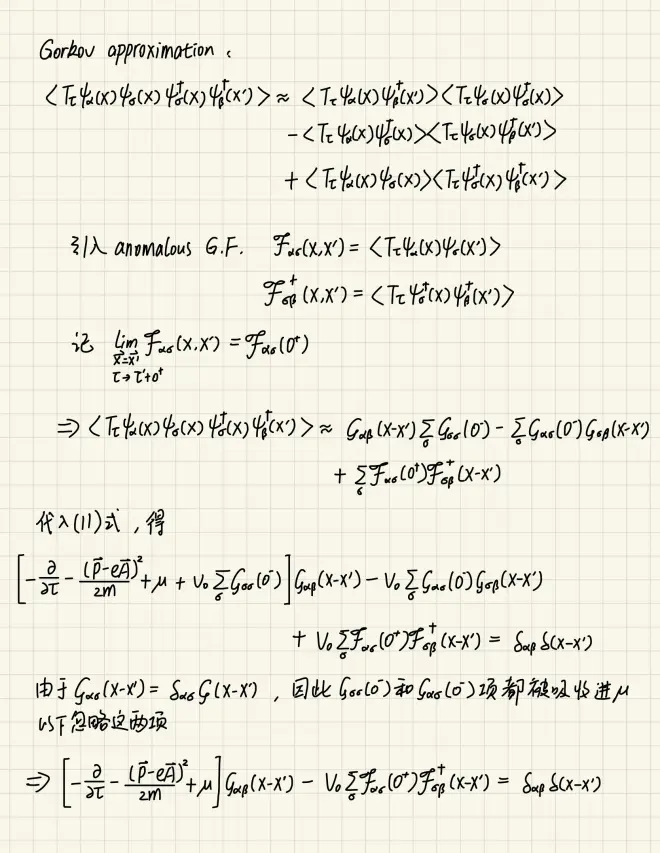 Gorkov approximation:
<T_τ ψ_α(x) ψ_σ(x) ψ_σ^†(x) ψ_β^†(x')> ≈ <T_τ ψ_α(x) ψ_β^†(x')><T_τ ψ_σ(x) ψ_σ^†(x)>
- <T_τ ψ_α(x) ψ_σ^†(x)><T_τ ψ_σ(x) ψ_β^†(x')>
+ <T_τ ψ_α(x) ψ_σ(x)><T_τ ψ_σ^†(x) ψ_β^†(x')>
引入 anomalous G.F. ℱ_ασ(x,x') = <T_τ ψ_α(x) ψ_σ(x')>
ℱ_σβ^†(x,x') = <T_τ ψ_σ^†(x) ψ_β^†(x')>
记 lim_{x⃗=x⃗', τ→τ'+0⁺} ℱ_ασ(x,x') = ℱ_ασ(0⁺)
⇒ <T_τ ψ_α(x) ψ_σ(x) ψ_σ^†(x) ψ_β^†(x')> ≈ G_αβ(x-x') Σ_σ G_σσ(0⁻) - Σ_σ G_ασ(0⁻) G_σβ(x-x')
+ Σ_σ ℱ_ασ(0⁺) ℱ_σβ^†(x-x')
代入(11)式,得
[-∂/∂τ - (p⃗-eA⃗)²/2m + μ + V₀ Σ_σ G_σσ(0⁻)] G_αβ(x-x') - V₀ Σ_σ G_ασ(0⁻) G_σβ(x-x')
+ V₀ Σ_σ ℱ_ασ(0⁺) ℱ_σβ^†(x-x') = δ_αβ δ(x-x')
由于 G_ασ(x-x') = δ_ασ G(x-x'),因此 G_σσ(0⁻) 和 G_ασ(0⁻) 项都被吸收进μ
以下忽略这两项
⇒ [-∂/∂τ - (p⃗-eA⃗)²/2m + μ] G_αβ(x-x') - V₀ Σ_σ ℱ_ασ(0⁺) ℱ_σβ^†(x-x') = δ_αβ δ(x-x')